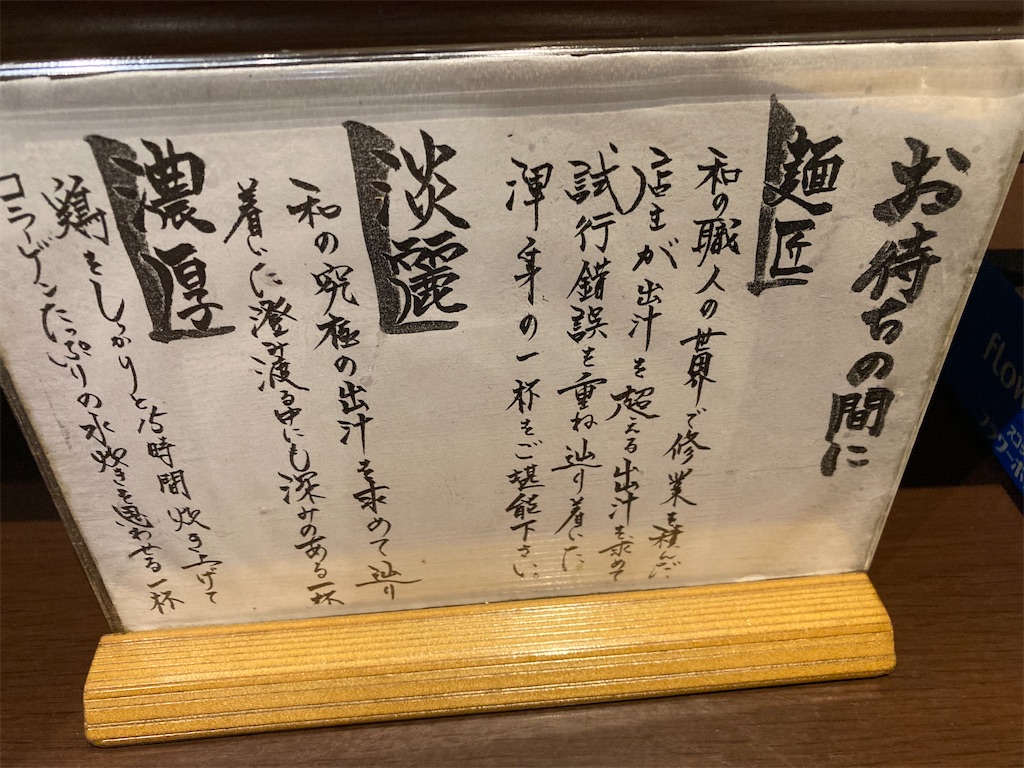 お待ちの間に
麺匠
和の職人の世界で修業を積んだ
店主が出汁を超える出汁を求めて
試行錯誤を重ね辿り着いた
渾身の一杯をご堪能下さい
淡麗
和の究極の出汁を求めて辿り
着いた澄み渡る中にも深みのある一杯
濃厚
鶏をしっかりと15時間炊き上げて
コラーゲンたっぷりの水炊きを思わせる一杯
FLOW
スコッ
フラワーボ